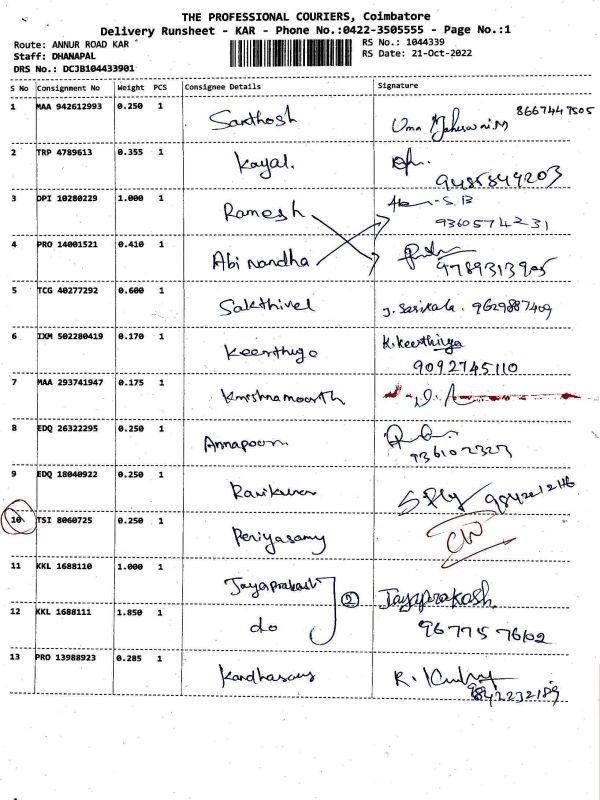 THE PROFESSIONAL COURIERS, Coimbatore
Delivery Runsheet - KAR - Phone No.:0422-3505555 - Page No.:1
Route: ANNUR ROAD KAR RS No.: 1044339
Staff: DHANAPAL RS Date: 21-Oct-2022
DRS No.: DCJB104433901
S No Consignment No Weight PCS Consignee Details Signature
1 MAA 942612993 0.250 1 Santhosh Uma Maheswari.M 8667447505
2 TRP 4789613 0.355 1 Kayal. 9485849203
3 DPI 10280229 1.000 1 Ramesh 9360574231
4 PRO 14001521 0.410 1 Abi nandha 9789313905
5 TCG 40277292 0.600 1 Sakthivel J. Sarikala. 9629887409
6 IXM 502280419 0.170 1 Keerthiga K.Keerthiga
9092745110
7 MAA 293741947 0.175 1 Krishnamoorth
8 EDQ 26322295 0.250 1 Annapoorn
9 EDQ 18040922 0.250 1 Ravikumar
10 TSI 8060725 0.250 1 Periyasamy
11 KKL 1688110 1.000 1 Jayaprakash 2 Jayaprakash.
12 KKL 1688111 1.850 1 do 9677577602
13 PRO 13988923 0.285 1 Kandhasamy
9842232189